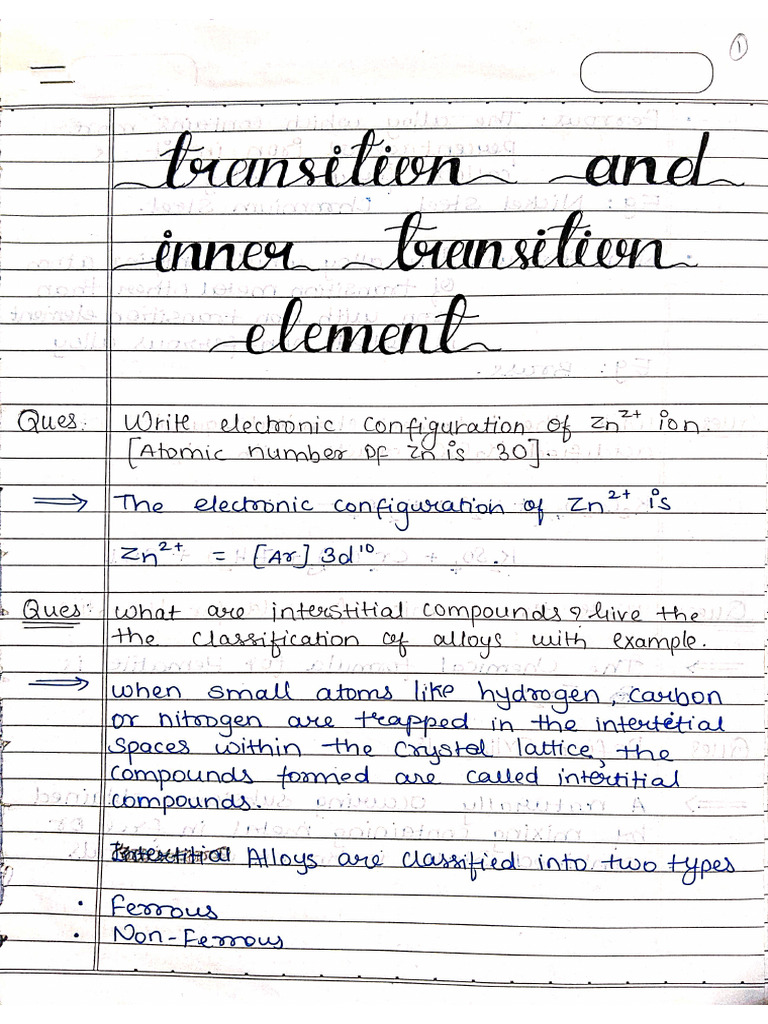 1
transition and
inner transition
element
Ques: Write electronic configuration of Zn²⁺ ion.
[Atomic number of Zn is 30].
⇒ The electronic configuration of Zn²⁺ is
Zn²⁺ = [Ar] 3d¹⁰
Ques: What are interstitial compounds? Give the
the classification of alloys with example.
⇒ when small atoms like hydrogen, carbon
or nitrogen are trapped in the intertetial
spaces within the crystal lattice, the
compounds formed are called intertitial
compounds.
Alloys are classified into two types
• Ferrous
• Non-Ferrous